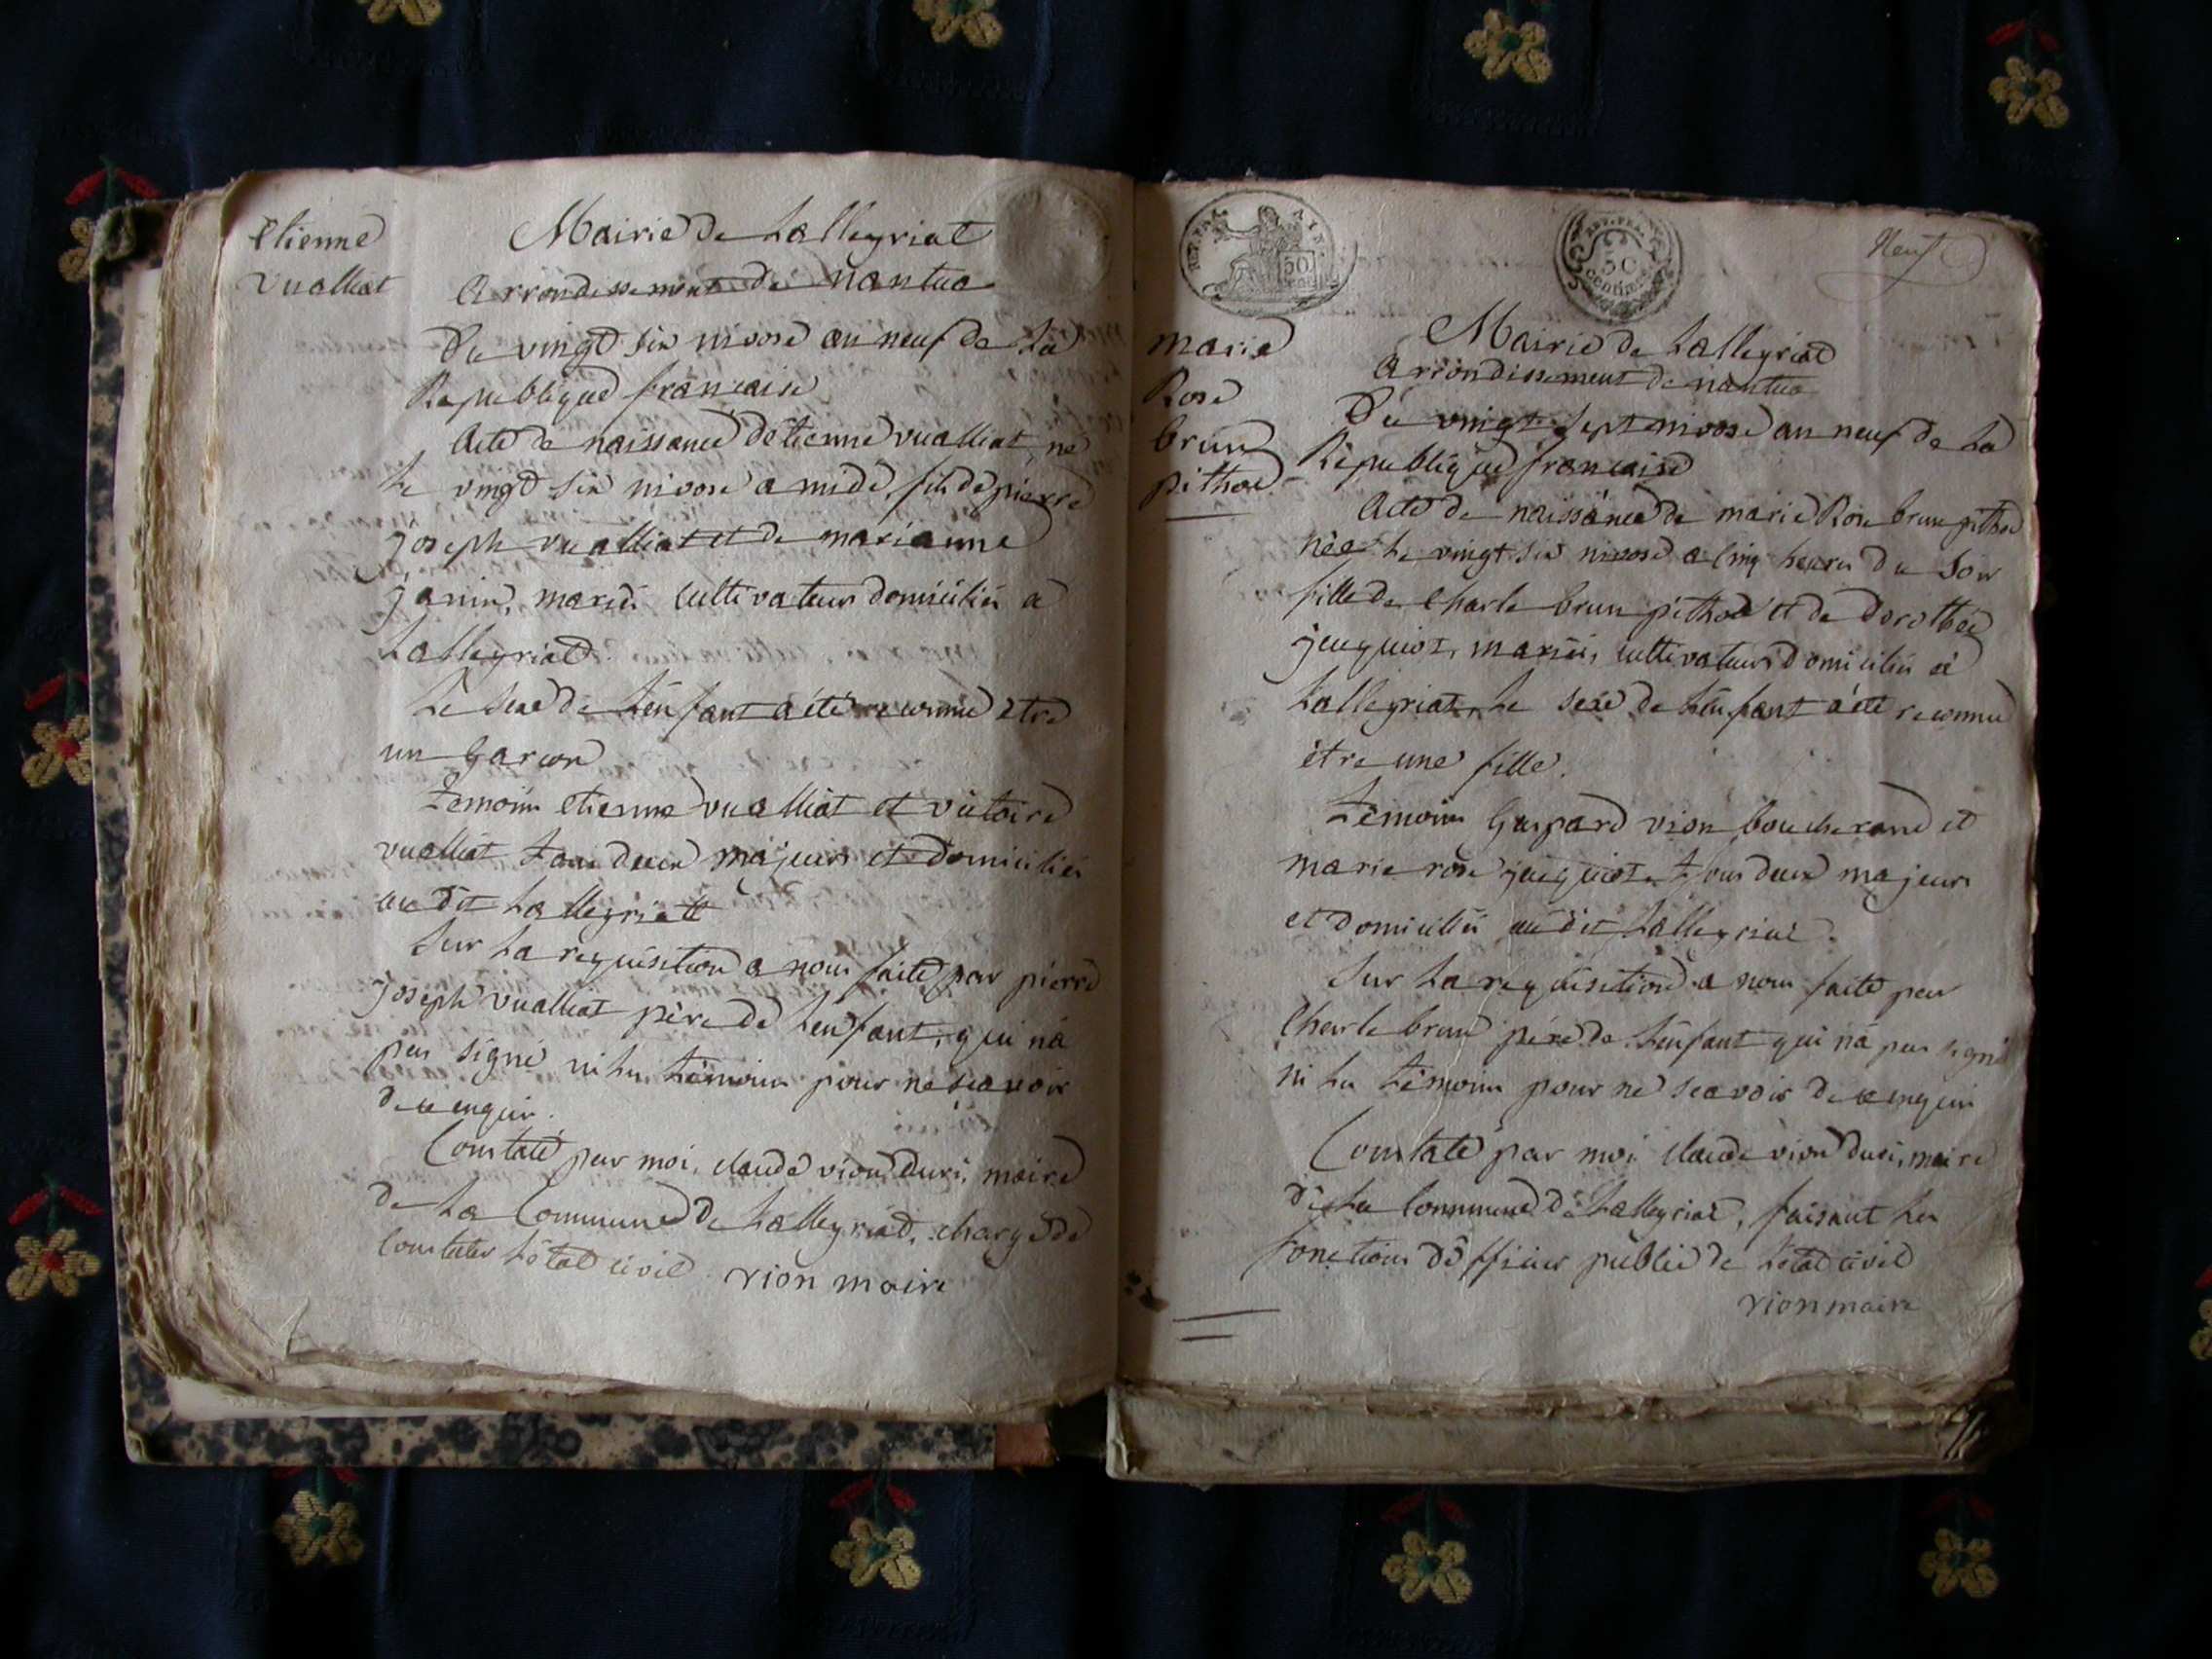 Etienne
Vualliat
Mairie de Lalleyriat
Arrondissement de nantua
Du vingt six nivose an neuf de La
Republique francaise
Acte de naissance detienne vualliat, né
Le vingt six nivose a midi, fils de pierre
joseph vualliat et de marianne
janin, mariés cultivateurs domiciliés a
Lalleyriat.
Le sexe de Lenfant a été reconnu etre
un Garcon
Témoins etienne vualliat et victoire
vualliat tous deux majeurs et domiciliés
au dit Lalleyriat
Sur La requisition a nous faite par pierre
joseph vualliat père de Lenfant, qui n'a
pas signé ni les témoins pour ne scavoir
de ce enquis.
Constaté par moi, claude vion duri, maire
de La Commune de Lalleyriat, chargé de
constater Létat civil. vion maire
REP. FRA.
50
REP. FRA.
50
centimes
Neuf
marie
Rose
brun
pithod
Mairie de Lalleyriat
Arrondissement de nantua
Du vingt sept nivose an neuf de La
Republique francaise
Acte de naissance de marie Rose brun pithod
née Le vingt six nivose a cinq heures du Soir
fille de Charle brun pithod et de dorothée
jeuquiot, mariés, cultivateurs domiciliés à
Lalleyriat, Le sexe de Lenfant a été reconnu
être une fille.
Témoins Gaspard vion boucherand et
marie rose jeuquiot tous deux majeurs
et domiciliés au dit Lalleyriat.
Sur La requisition a nous faite par
Charle brun père de Lenfant qui n'a pas signé
ni les témoins pour ne scavoir de ce enquis
Constaté par moi claude vion duri, maire
de La Commune de Lalleyriat, faisant Les
fonctions dofficier public de Létat civil
vion maire